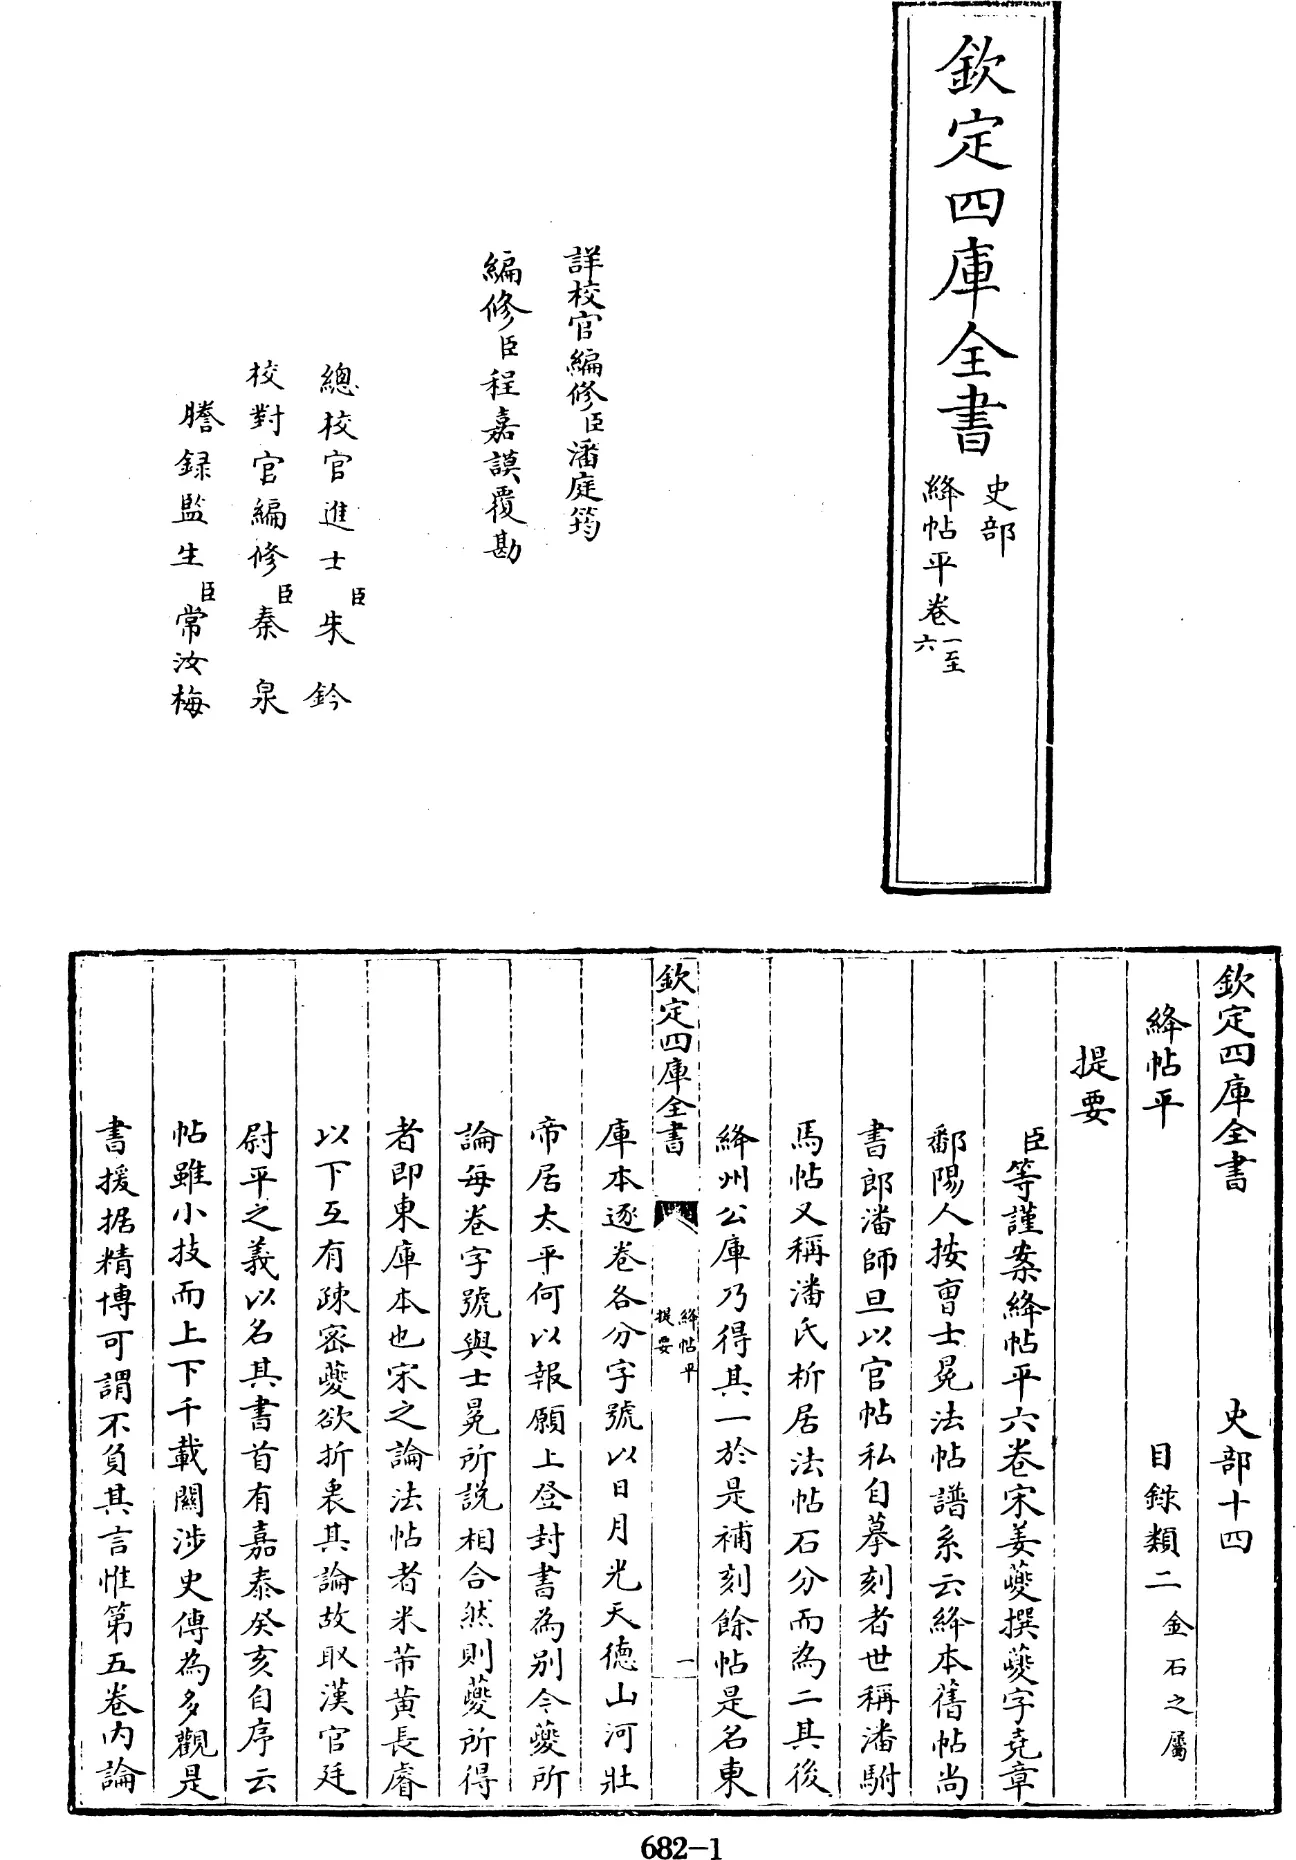 欽定四庫全書
史部
絳帖平卷一至六
詳校官編修臣潘庭筠
編修臣程嘉謨覆勘
總校官進士臣朱鈐
校對官編修臣秦泉
謄録監生臣常汝梅
欽定四庫全書 史部十四
絳帖平 目錄類二金石之屬
提要
臣等謹案絳帖平六卷宋姜夔撰夔字堯章
鄱陽人按曹士冕法帖譜系云絳本舊帖尚
書郎潘師旦以官帖私自摹刻者世稱潘駙
馬帖又稱潘氏析居法帖石分而為二其後
絳州公庫乃得其一於是補刻餘帖是名東
欽定四庫全書 絳帖平提要 一
庫本逐卷各分字號以日月光天德山河壯
帝居太平何以報願上登封書為别今夔所
論每卷字號與士冕所說相合然則夔所得
者即東庫本也宋之論法帖者米芾黄長睿
以下互有疎宻夔欲折衷其論故取漢官廷
尉平之義以名其書首有嘉泰癸亥自序云
帖雖小技而上下千載關涉史傳為多觀是
書援据精博可謂不負其言惟第五卷内論
682-1